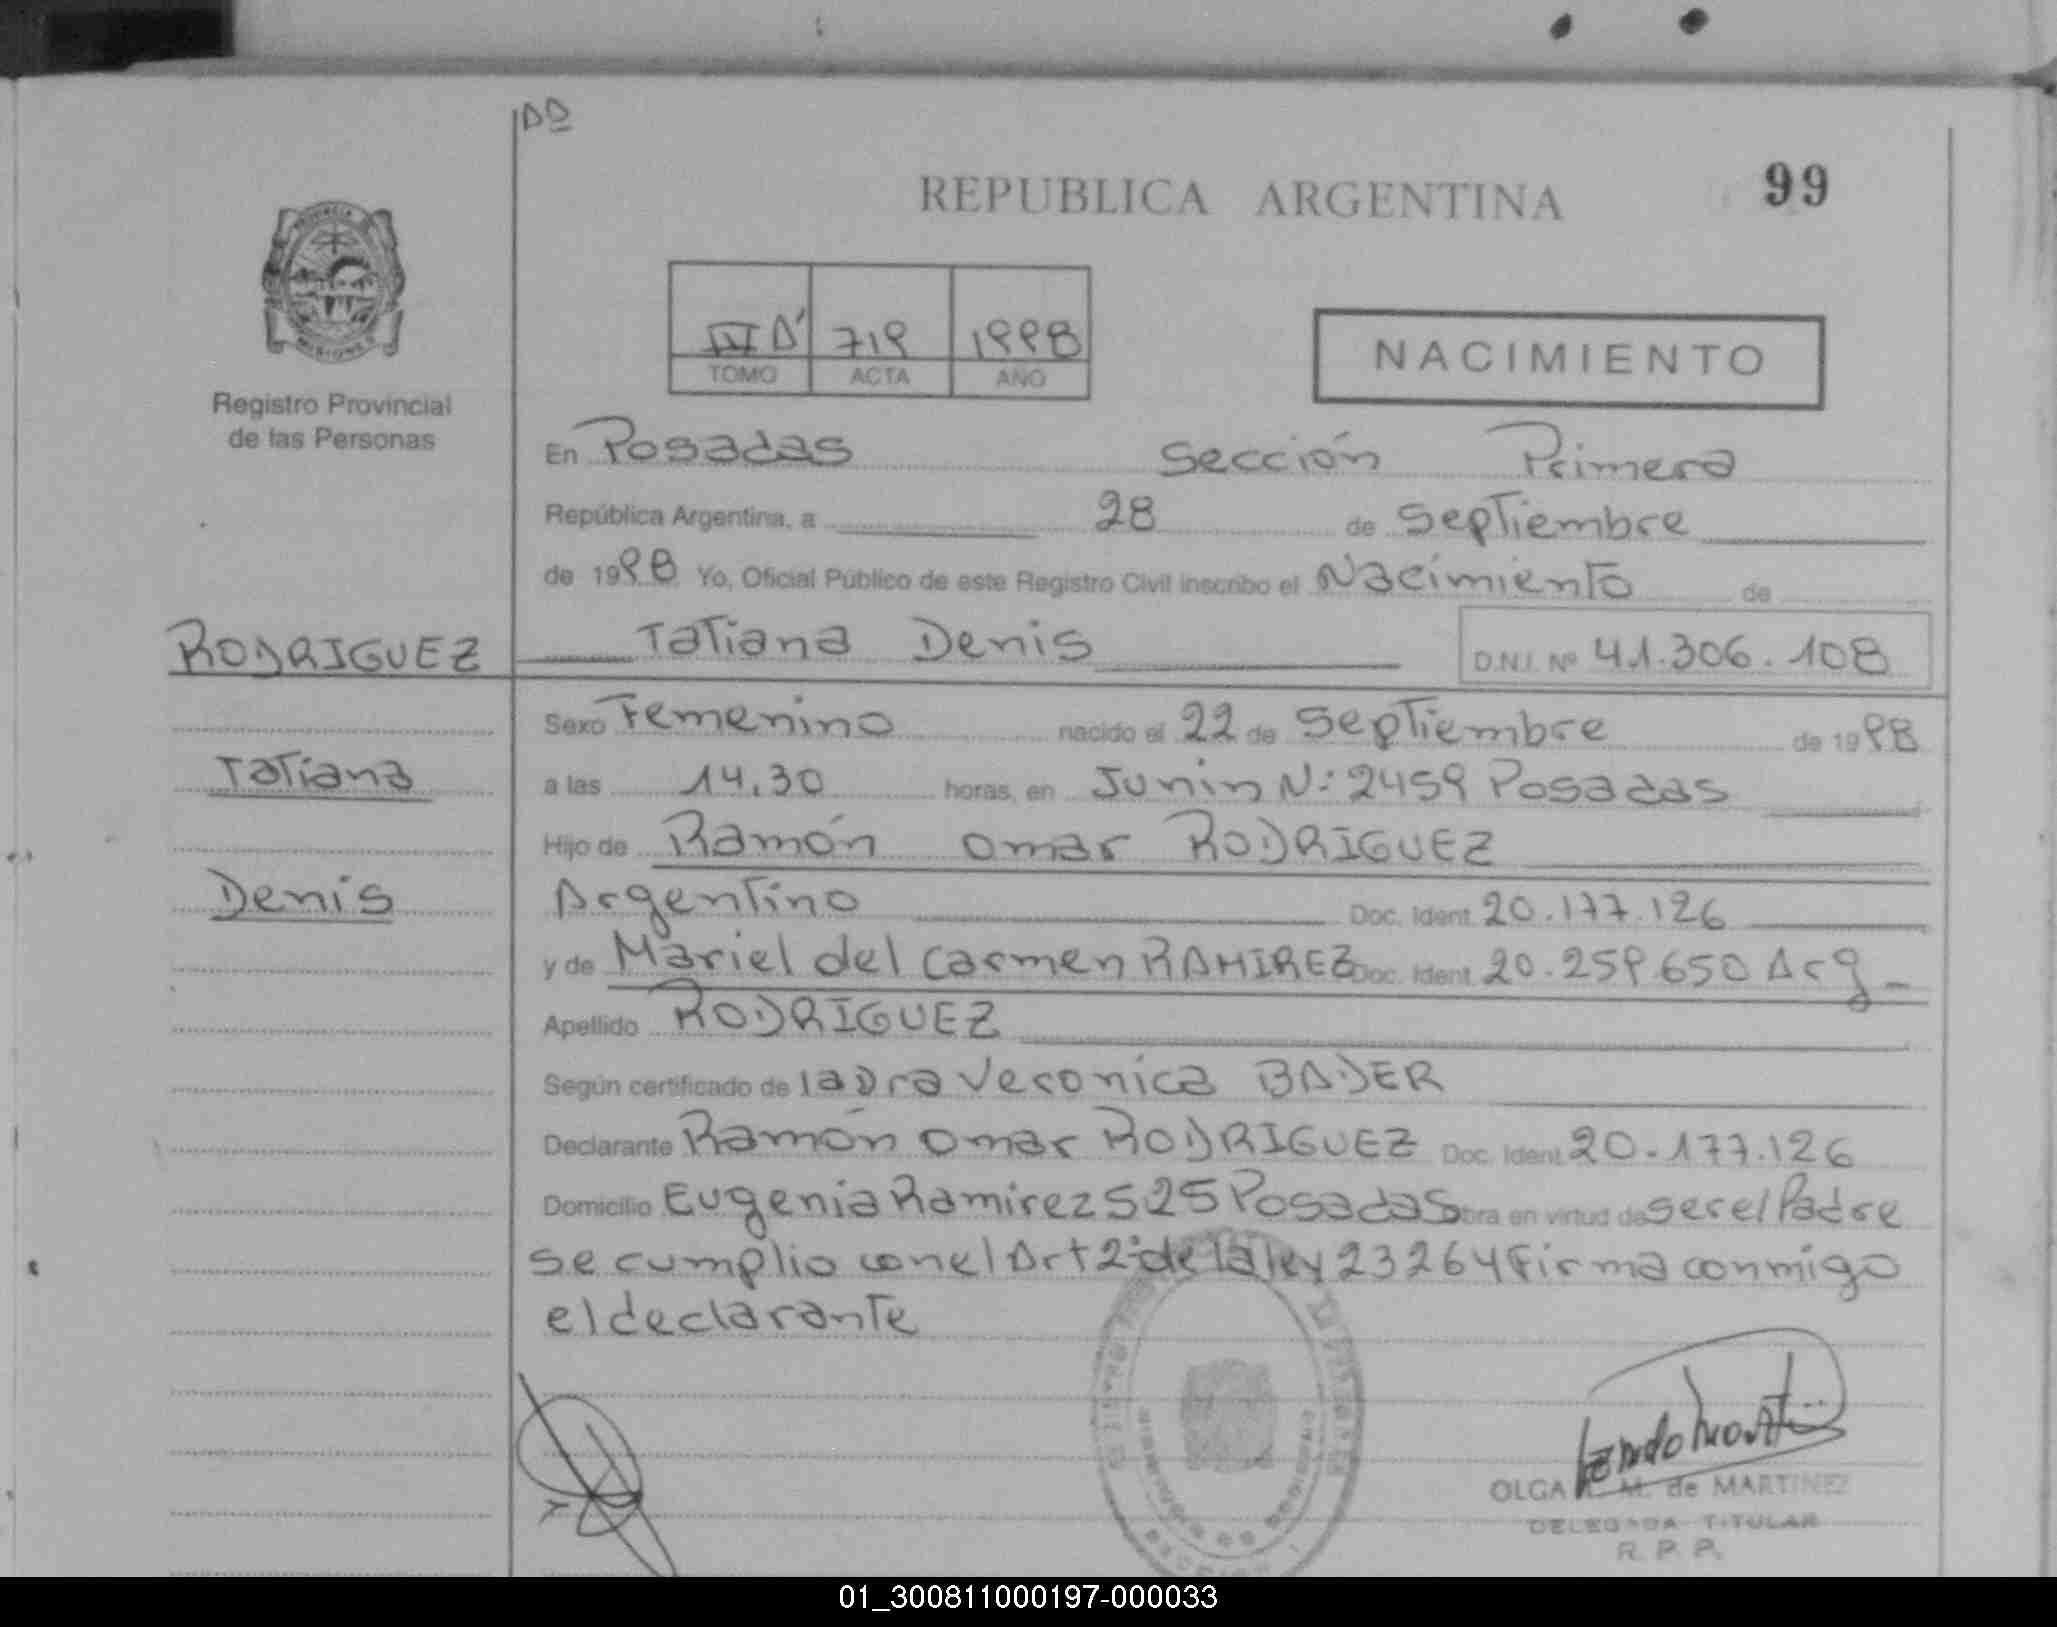 REPUBLICA ARGENTINA
99
MISIONES
Registro Provincial
de las Personas
719 1998
TOMO ACTA AÑO
NACIMIENTO
En Posadas Sección Primera
República Argentina, a 28 de Septiembre
de 1998 Yo, Oficial Público de este Registro Civil inscribo el Nacimiento de
RODRIGUEZ Tatiana Denis D.N.I. Nº 41.306.108
Sexo Femenino nacido el 22 de Septiembre de 1998
Tatiana a las 14.30 horas, en Junin N: 2459 Posadas
Hijo de Ramón Omar RODRIGUEZ
Denis Argentino Doc. Ident. 20.177.126
y de Mariel del Carmen RAMIREZ Doc. Ident. 20.259.650 Arg
Apellido RODRIGUEZ
Según certificado de la Dra Veronica BADER
Declarante Ramón Omar RODRIGUEZ Doc. Ident. 20.177.126
Domicilio Eugenia Ramirez 525 Posadas obra en virtud de ser el Padre
se cumplio con el Art 2º de la ley 23264 Firma conmigo
el declarante
OLGA M. de MARTINEZ
DELEGADA TITULAR
R. P. P.
01_300811000197-000033